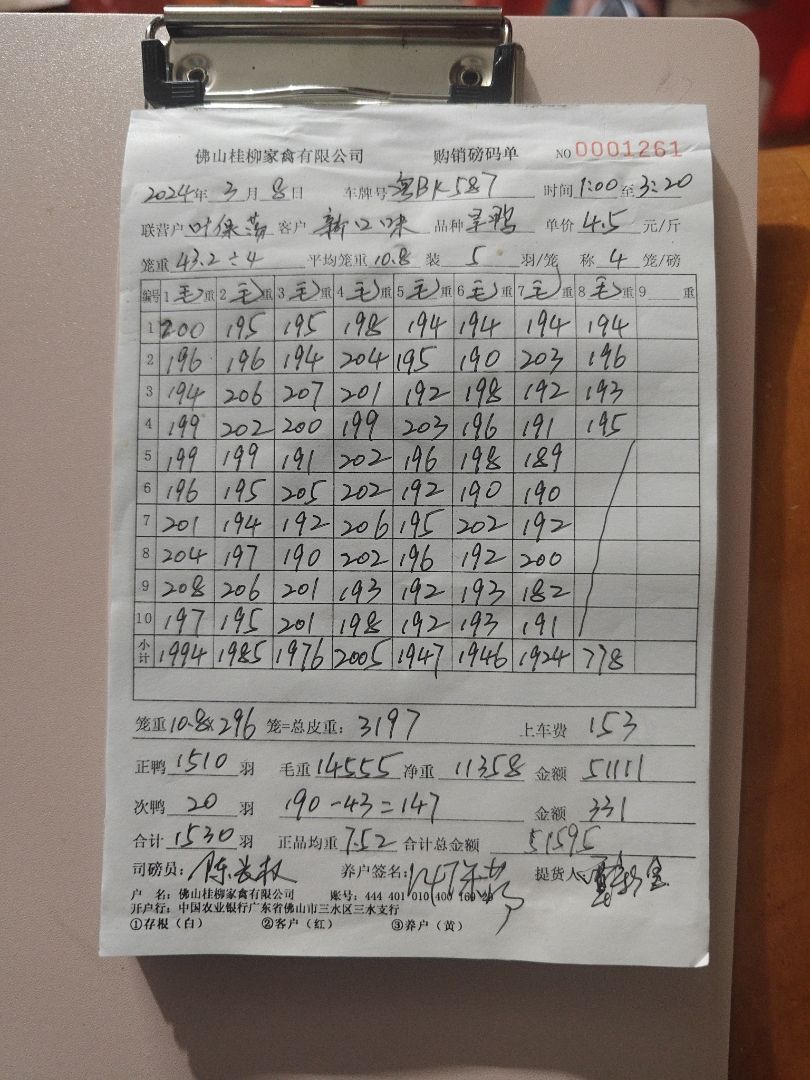 佛山桂柳家禽有限公司 购销磅码单 NO 0001261
2024年 3月 8日 车牌号 粤BK587 时间 1:00 至 3:20
联营户 叶保荡 客户 新口味 品种 旱鸭 单价 4.5 元/斤
笼重 43.2÷4 平均笼重 10.8 装 5 羽/笼 称 4 笼/磅
编号 1 毛 重 2 毛 重 3 毛 重 4 毛 重 5 毛 重 6 毛 重 7 毛 重 8 毛 重 9 重
1 200 195 195 198 194 194 194 194
2 196 196 194 204 195 190 203 196
3 194 206 207 201 192 198 192 193
4 199 202 200 199 203 196 191 195
5 199 199 191 202 196 198 189
6 196 195 205 202 192 190 190
7 201 194 192 206 195 202 192
8 204 197 190 202 196 192 200
9 208 206 201 193 192 193 182
10 197 195 201 198 192 193 191
小计 1994 1985 1976 2005 1947 1946 1924 778
笼重 10.8 × 296 笼=总皮重: 3197 上车费 153
正鸭 1510 羽 毛重 14555 净重 11358 金额 51111
次鸭 20 羽 190-43=147 金额 331
合计 1530 羽 正品均重 7.52 合计总金额 51595
司磅员: 陈 权 养户签名: 提货人:
户 名: 佛山桂柳家禽有限公司 账号: 444 401 010 400 169 29
开户行: 中国农业银行广东省佛山市三水区三水支行
①存根(白) ②客户(红) ③养户(黄)